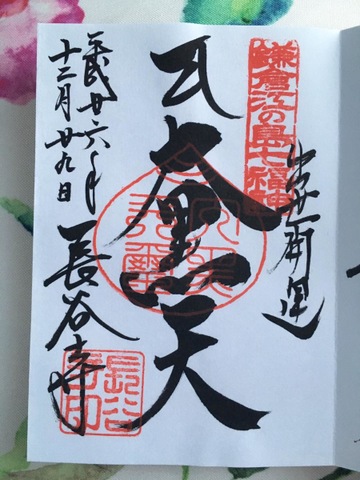 鎌倉江の島七福神
出世開運
大黒天
平成廿六年
十二月廿九日
長谷寺
長谷寺印